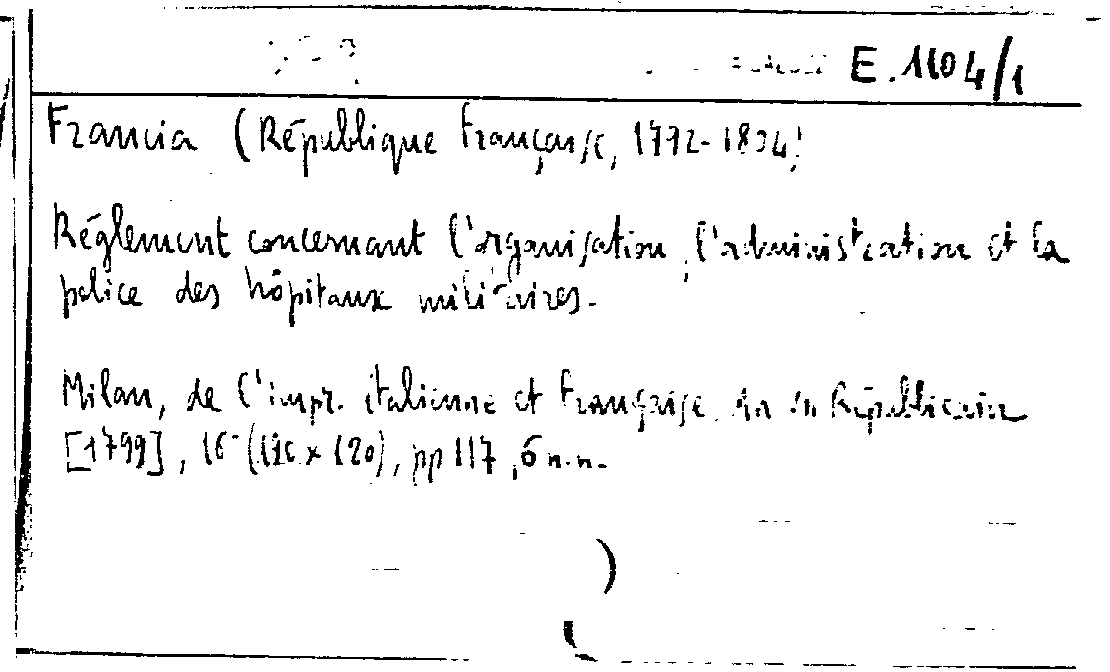 E.1104/1
Francia (République Française, 1792-1804)
Réglement concernant l'organisation, l'administration et la
police des hôpitaux militaires.
Milan, de l'impr. italienne et française. An Républicain
[1799], 16° (196 x 120), pp 117, 6 n.n.